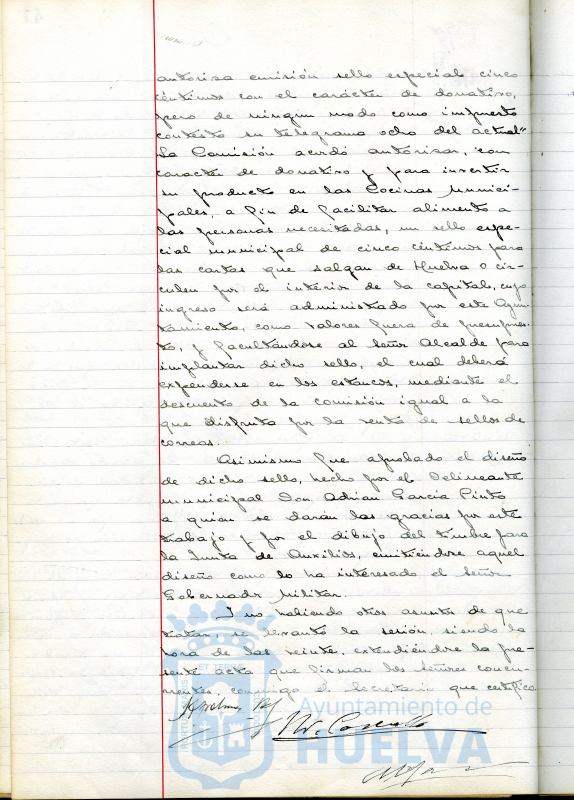 autorisa emisión sello especial cinco
céntimos con el carácter de donativo,
pero de ningun modo como impuesto
contesto su telegrama ocho del actual"
La Comisión acordó autorisar, con
caracter de donativo y para invertir
su producto en las Cocinas Munici-
pales, a fin de facilitar alimento a
las personas necesitadas, un sello espe-
cial municipal de cinco céntimos para
las cartas que salgan de Huelva o cir-
culen por el interior de la capital, cuyo
ingreso será administrado por este Ayun-
tamiento, como valores fuera de presupues-
to, y facultándose al Señor Alcalde para
implantar dicho sello, el cual deberá
expenderse en los estancos, mediante el
descuento de la comisión igual a la
que disfruta por la venta de sellos de
correos.
Asimismo fue aprobado el diseño
de dicho sello, hecho por el Delineante
municipal Don Adrian Garcia Pinto
a quien se darán las gracias por este
trabajo y por el dibujo del timbre para
la Junta de Auxilios, emitiéndose aquel
diseño como lo ha interesado el Señor
Gobernador Militar.
Y no habiendo otros asuntos de que
tratar, se levantó la sesión, siendo la
hora de las veinte, extendiéndose la pre-
sente acta que firman los señores concu-
rrentes, conmigo el Secretario que certifico.
ET TERRÆ
Ayuntamiento de
HUELVA